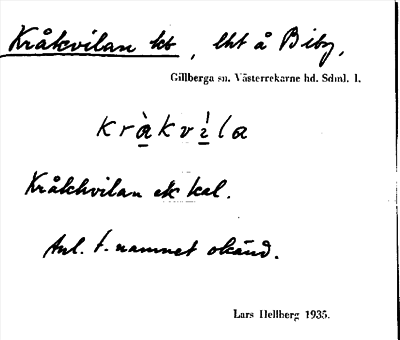 Kråkvilan kt, lht å Biby,
Gillberga sn. Västerrekarne hd. Sdml. l.
kràkvìla
Kråkhvilan ek kal.
Anl. t. namnet okänd.
Lars Hellberg 1935.